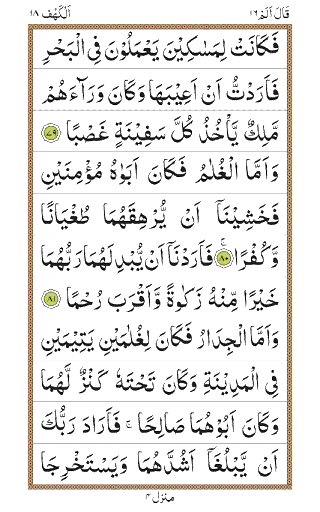 قَالَ اَلَمْ ١٦ اَلْكَهْف ١٨
فَكَانَتْ لِمَسٰكِيْنَ يَعْمَلُوْنَ فِي الْبَحْرِ
فَاَرَدْتُّ اَنْ اَعِيْبَهَا وَكَانَ وَرَآءَهُمْ
مَّلِكٌ يَّاْخُذُ كُلَّ سَفِيْنَةٍ غَصْبًا ٧٩
وَاَمَّا الْغُلٰمُ فَكَانَ اَبَوٰهُ مُؤْمِنَيْنِ
فَخَشِيْنَآ اَنْ يُّرْهِقَهُمَا طُغْيَانًا
وَّكُفْرًا ٨٠ فَاَرَدْنَآ اَنْ يُّبْدِلَهُمَا رَبُّهُمَا
خَيْرًا مِّنْهُ زَكٰوةً وَّاَقْرَبَ رُحْمًا ٨١
وَاَمَّا الْجِدَارُ فَكَانَ لِغُلٰمَيْنِ يَتِيْمَيْنِ
فِي الْمَدِيْنَةِ وَكَانَ تَحْتَهٗ كَنْزٌ لَّهُمَا
وَكَانَ اَبُوْهُمَا صَالِحًا ۚ فَاَرَادَ رَبُّكَ
اَنْ يَّبْلُغَآ اَشُدَّهُمَا وَيَسْتَخْرِجَا
منزل ٤